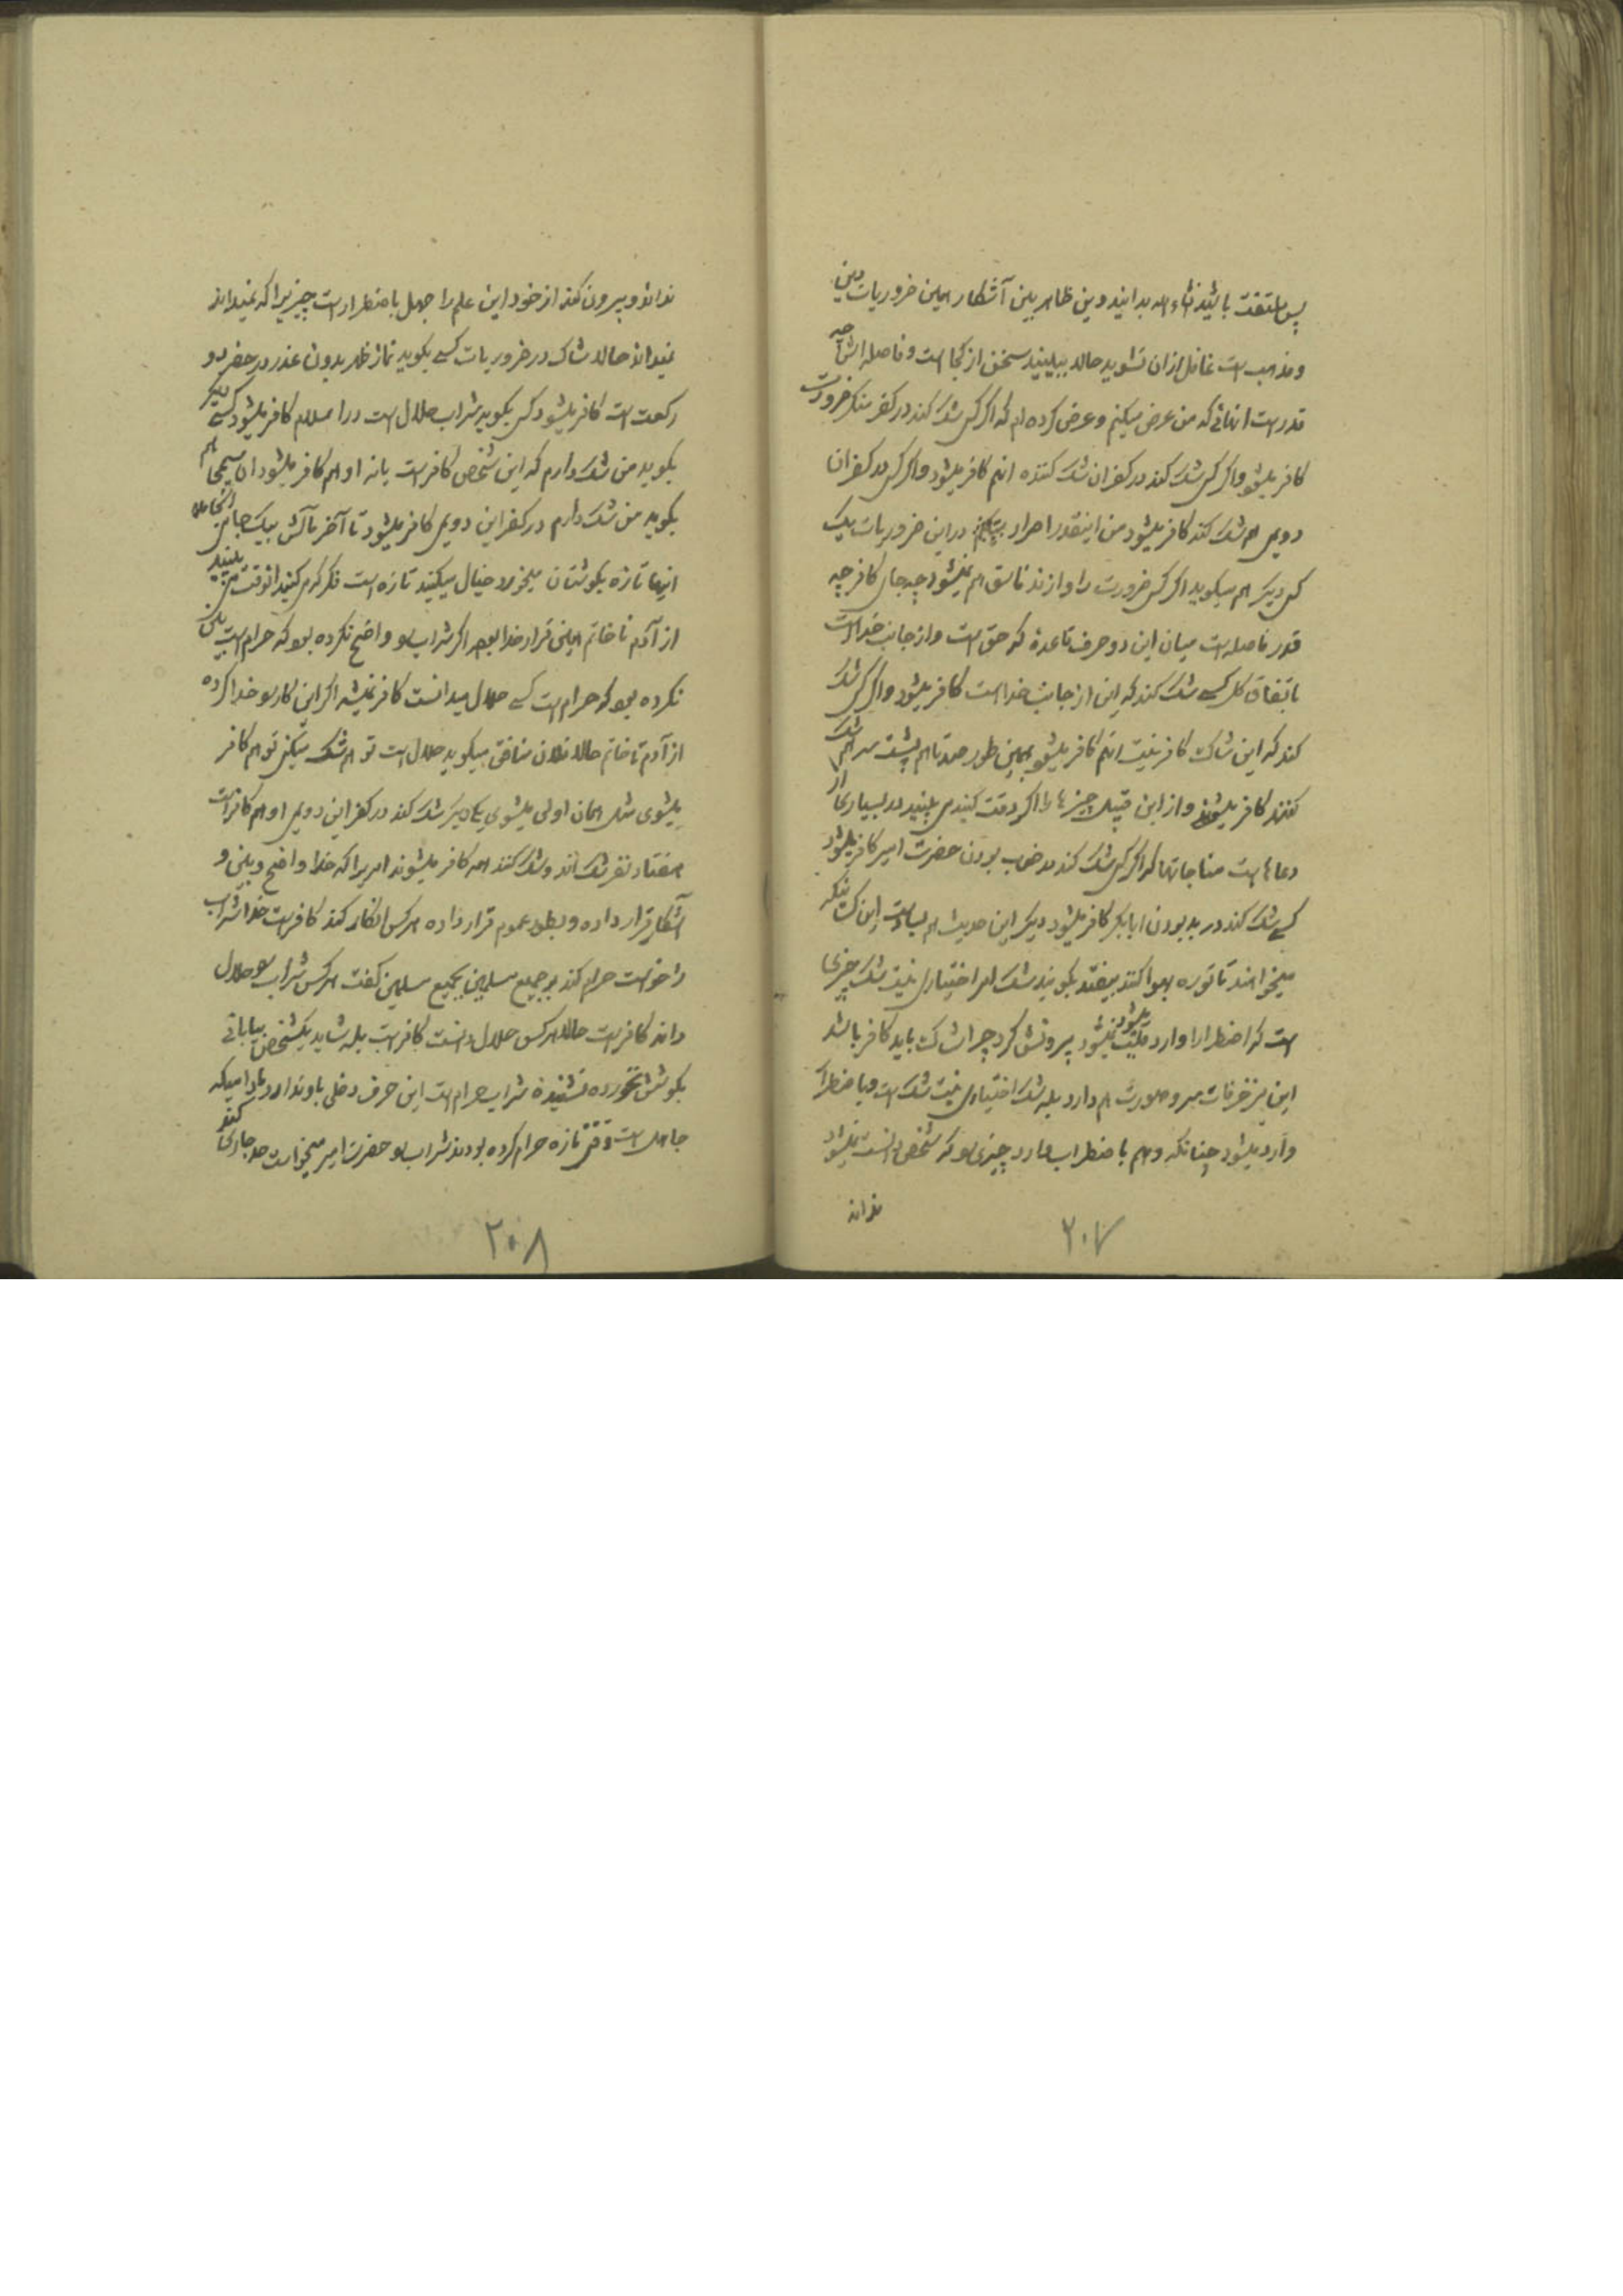 پس ملتفت باشید انشاءالله بدانید دین ظاهر بین آشکار همین ضروریات دین
و مذهب است غافل از آن نشوید حالا ببینید سخن از کجا است و فاصله‌اش چه
قدر است اینهائی که من عرض میکنم و عرض کرده‌ام که اگر کسی شک کند در کفر منکر ضرورت
کافر میشود و اگر کسی شک کند در کفر آن شک کننده آنهم کافر میشود و اگر کسی در کفر آن
دویمی هم شک کند کافر میشود من اینقدر اصرار میکنم در این ضروریات یک
کس دیگر هم میگوید اگر کسی ضرورت را وازند فاسق هم نمیشود چه جای کافر چه
قدر فاصله است میان این دو حرف قاعدهٔ که حق است و از جانب خداست
باتفاق کل کسی شک کند که این از جانب خدا است کافر میشود و اگر کسی شک
کند که این شاک کافر نیست آنهم کافر میشود بهمین طور صد تا هم پشت سر هم شک
کنند کافر میشوند و از این قبیل چیزها را اگر دقت کنید می بینید در بسیاری از
دعاها هست مناجاتها که اگر کسی شک کند در خوب بودن حضرت امیر کافر میشود
کسی شک کند در بد بودن ابابکر کافر میشود دیگر این حدیث هم بسیار است این کسانیکه
میخواهند تا توره بهوا کنند بیفتند بگویند شک امر اختیاری نیست شک چیزی
است که اضطرارا وارد میشود نمیشود بیرونش کرد چرا شاک باید کافر باشد
این مزخرفات سر و صورت هم دارد بله شک اختیاری نیست شک است و باضطرار
وارد میشود چنانکه وهم باضطراب وارد چیزی را که شخص دانست نمیشود
نداند
۲۰۷
نداند و بیرون کند از خود این علم را جهل باضطرار است چیزیرا که نمیداند
نمیداند حالا شاک در ضروریات کسی بگوید نماز ظهر بدون عذر در حضر دو
رکعت است کافر میشود کسی بگوید شراب حلال است در اسلام کافر میشود کسی دیگر
بگوید من شک دارم که این شخص کافر است یا نه او هم کافر میشود آن سیمی هم
بگوید من شک دارم در کفر این دویمی کافر میشود تا آخر تا آنش بیک جا می‌انجامد
اینها تازه بگوشتان میخورد خیال میکنید تازه است فکر کرمی کنید آنوقت می بینید
از آدم تا خاتم همین قرار خدا بوده اگر شراب را واضح نکرده بود که حرام است بین
نکرده بود که حرام است کسی حلال میدانست کافر نمیشد اگر این کار را خدا کرده
از آدم تا خاتم حالا فلان منافق میگوید حلال است تو هم شک میکنی تو هم کافر
میشوی مثل همان اولی میشوی یکی دیگر شک کند در کفر این دویمی او هم کافر است
هفتاد نفر شک اند و شک کنند همه کافر میشوند امریرا که خدا واضح و بین و
آشکار قرار داده و بطور عموم قرار داده هر کس انکار کند کافر است خدا شراب
را خواست حرام کند بر جمیع مسلمین بجمیع مسلمین گفت هر کس شراب را حلال
داند کافر است حالا هر کس حلال دانست کافر است بله شاید یکشخص بیابانی
بگوشش نخورده نشنیده شراب حرام است این حرف دخلی باو ندارد مادامیکه
جاهل است وقتی تازه حرام کرده بودند شراب را حضرت امیر میخواست حد جاری کند
۲۰۸